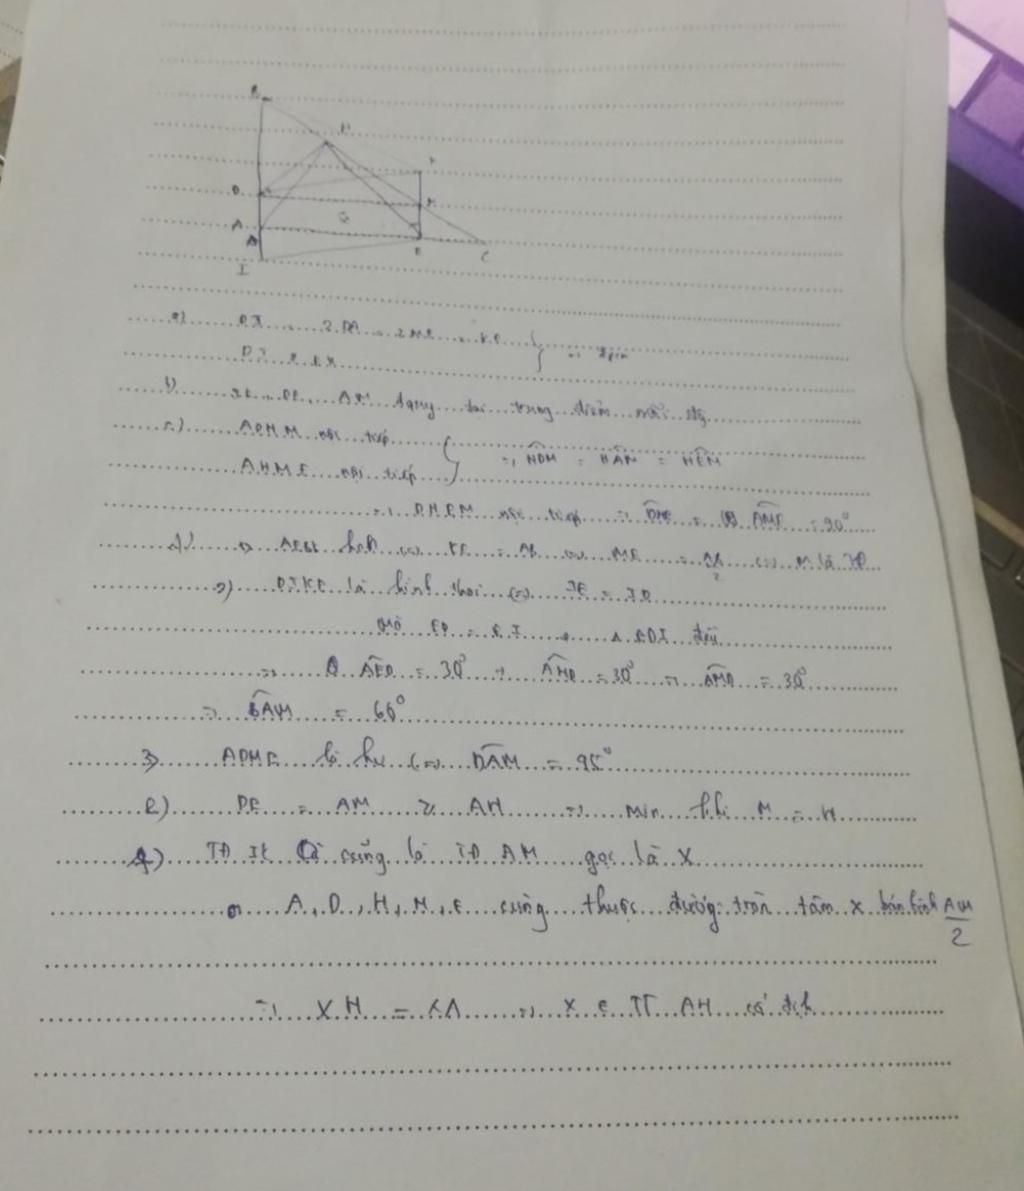 B
H
K
D
M
G
A
E
C
I
a) DI = 2 DA = 2ME = KE
DI // EK
b) IK, DE, AM đồng tại trung điểm mỗi đg
c) ADHM nội tiếp
AHME nội tiếp
=> HDM = HAM = HEM
=> DHEM nội tiếp => DHE = AME = 90°
d) AEBK hbh <=> KE = AB <=> ME = AB/2 <=> M là TĐ
2) DIKE là hình thoi <=> IE = ID
Mà ED = EI => Δ EDI đều
=> AED = 30° => AMD = 30° => AMD = 30°
=> BAM = 60°
3) ADME là hv <=> DAM = 45°
e) DE = AM ≥ AH => Min khi M = H
TĐ IK cũng là TĐ AM gọi là X
A, D, H, M, E cùng thuộc đường tròn tâm X bán kính AM/2
=> XH = XA => X ∈ TT AH cố định